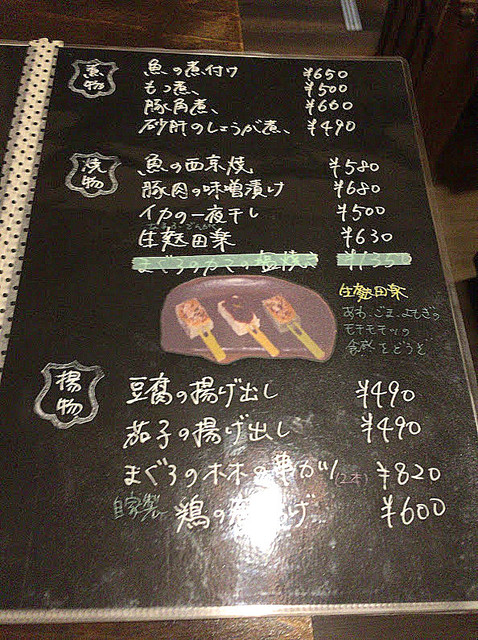 煮物
魚の煮付け ¥650
もつ煮 ¥500
豚角煮 ¥660
砂肝のしょうが煮 ¥490
焼物
魚の西京焼 ¥580
豚肉の味噌漬け ¥680
イカの一夜干し ¥500
生麩田楽 ¥630
まぐろのカマの塩焼き ¥1350
生麩田楽
あわ、ごま、よもぎの
モチモチッの
食感をどうぞ
揚物
豆腐の揚げ出し ¥490
茄子の揚げ出し ¥490
まぐろのホホの串カツ(2本) ¥820
自家製 鶏の げ ¥600